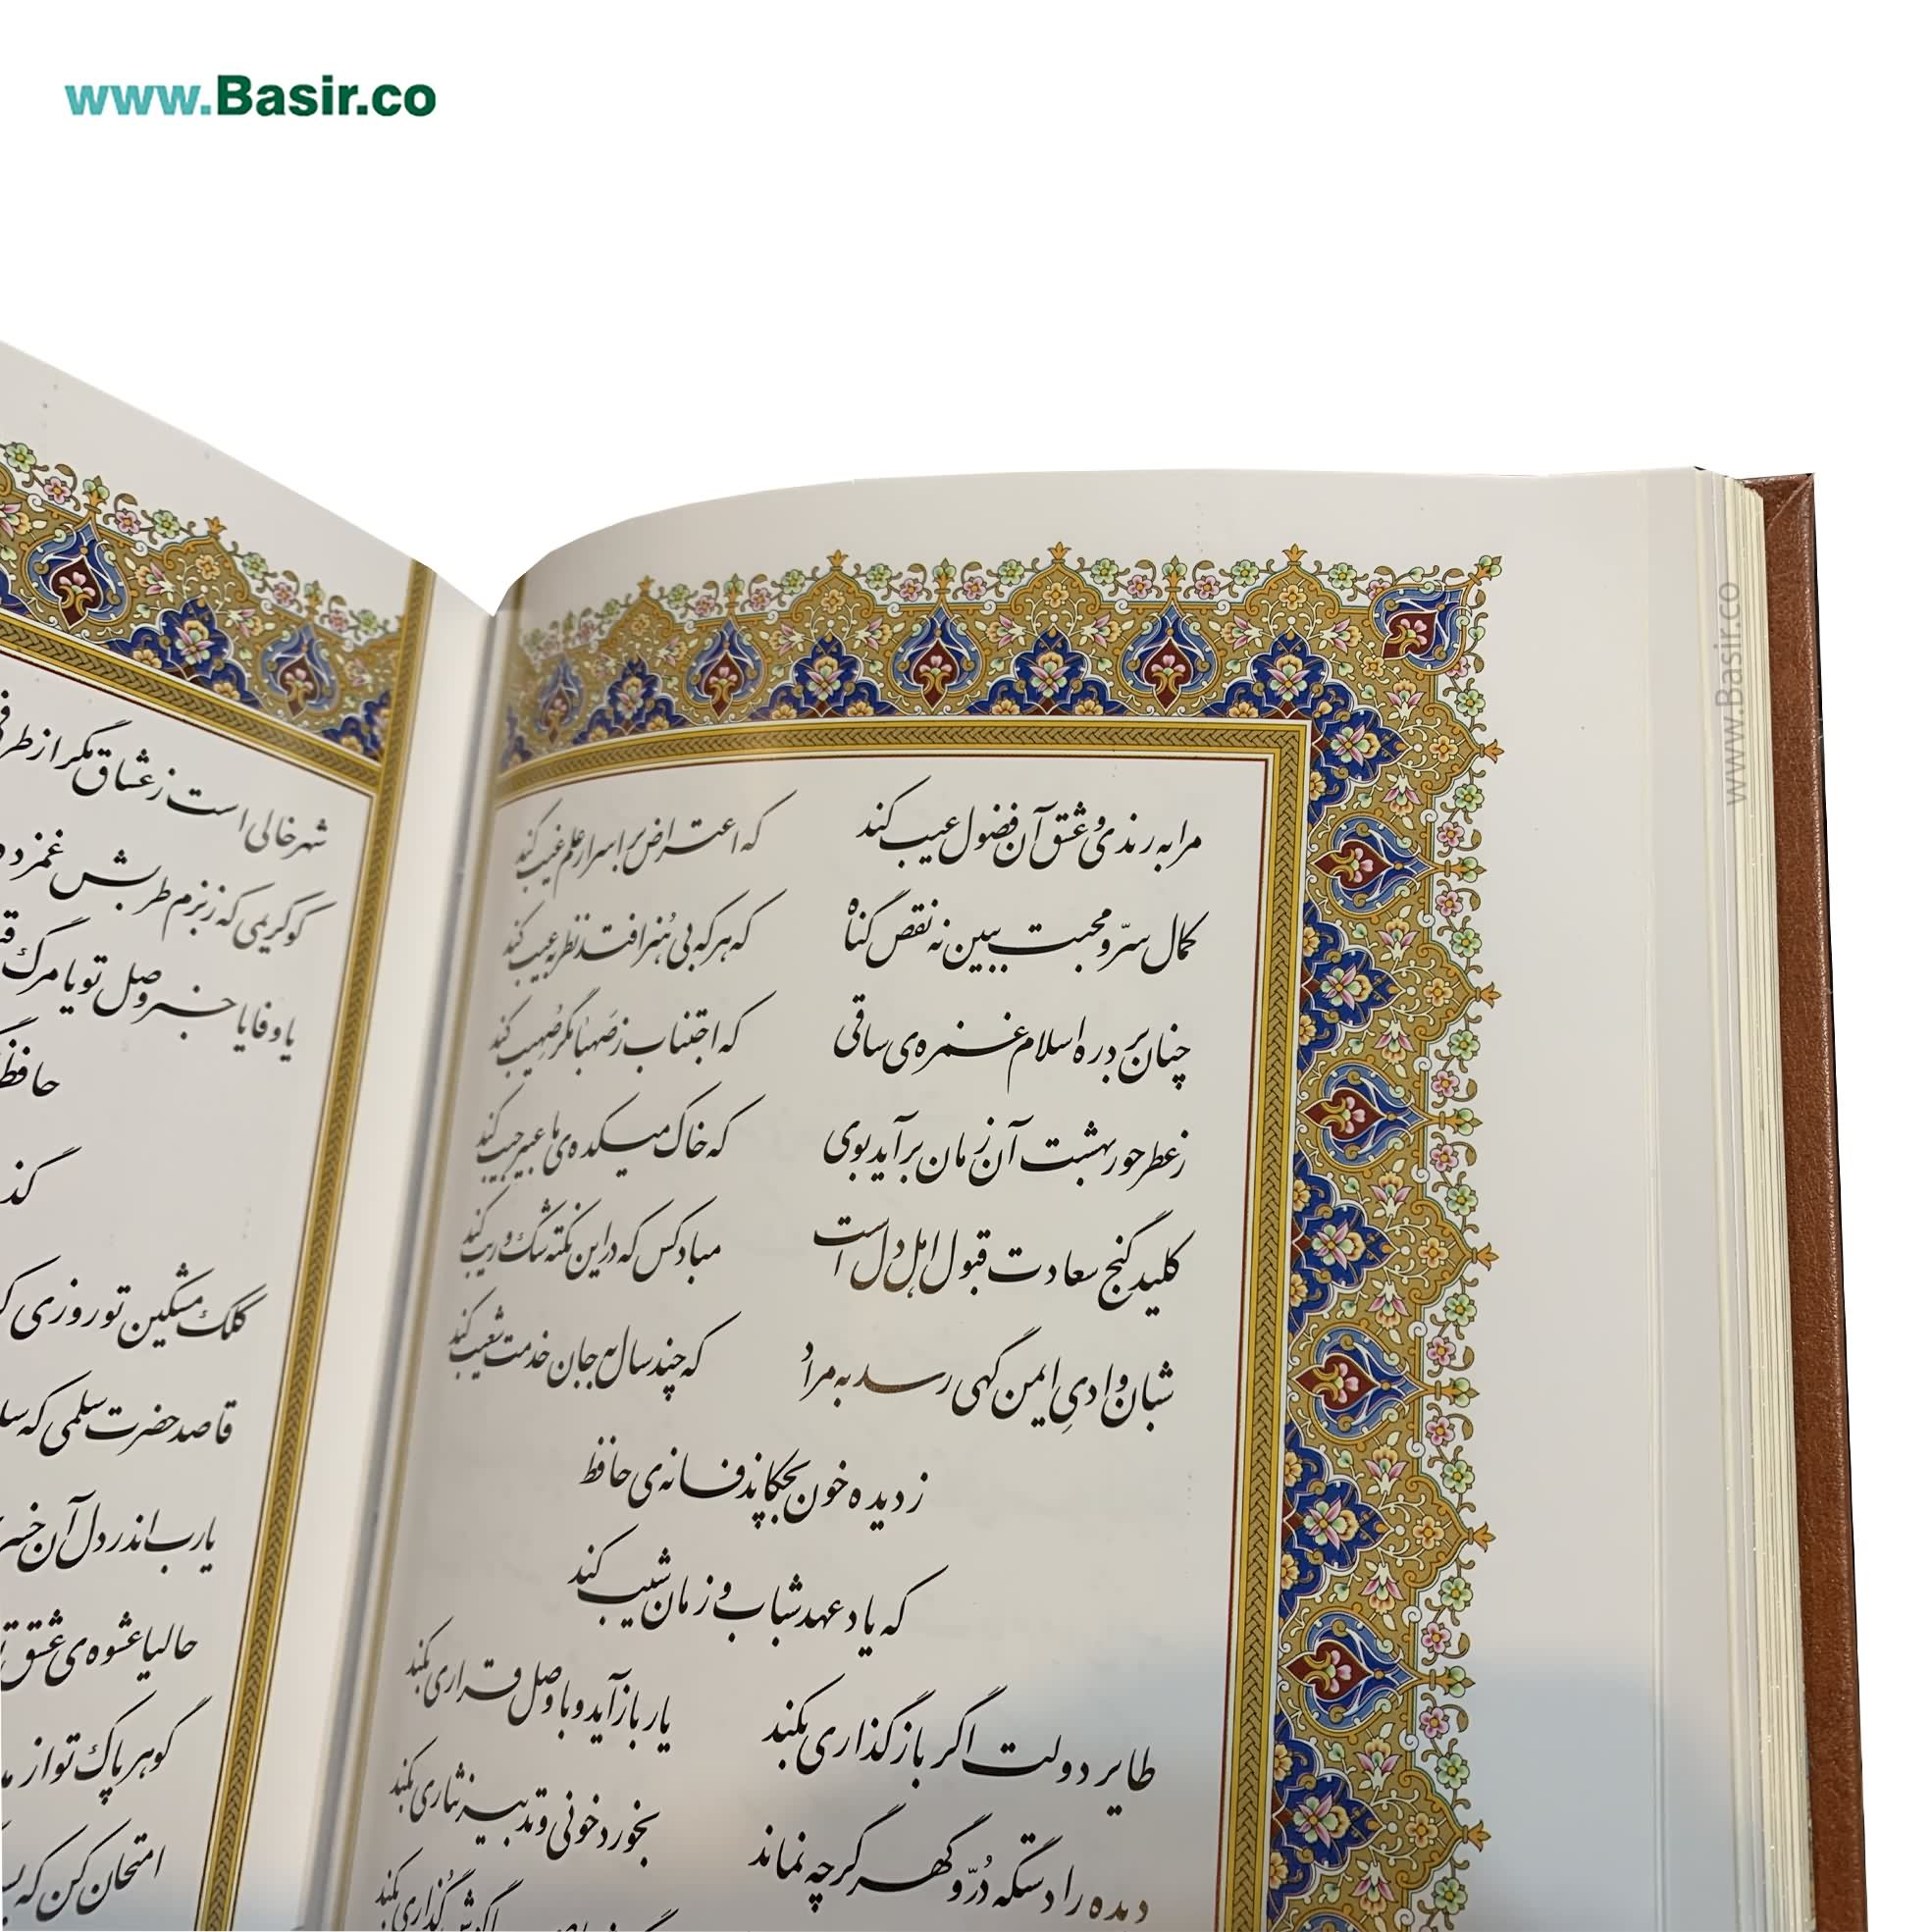 www.Basir.co
مرا به رندی و عشق آن فضول عیب کند که اعتراض بر اسرار علم غیب کند
کمال سرّ و محبت ببین نه نقص گناه که هر که بی هُنر افتد نظر به عیب کند
چنان بر در ه اسلام غمزه‌ی ساقی که اجتناب ز صَهبا مگر صُهیب کند
ز عطر حور بهشت آن زمان برآید بوی که خاک میکده‌ی ما عبیر جیب کند
کلید گنج سعادت قبول اهل دل است مباد کس که در این نکته شک و ریب کند
شبان وادیِ ایمن گهی رسد به مراد که چند سال به جان خدمت شعیب کند
ز دیده خون بچکاند فسانه‌ی حافظ
که یاد عهد شباب و زمان شیب کند
طایر دولت اگر باز گذاری بکند یار باز آید و با وصل قراری بکند
دیده را دستگه دُرّ و گهر گرچه نماند بخورد خونی و تدبیر نثاری بکند
گُذاری بکند
شهر خالی است ز عشاق مگر از طرفی
کو کریمی که ز بزم طربش غمزده
یا وفا یا خبر وصل تو یا مرگ
حافظ
گذ
کلک مشکین تو روزی که
قاصد حضرت سلمی که
یارب اندر دل آن
حالیا عشوه‌ی عشق
گوهر پاک تو از
امتحان کن که
www.Basir.co